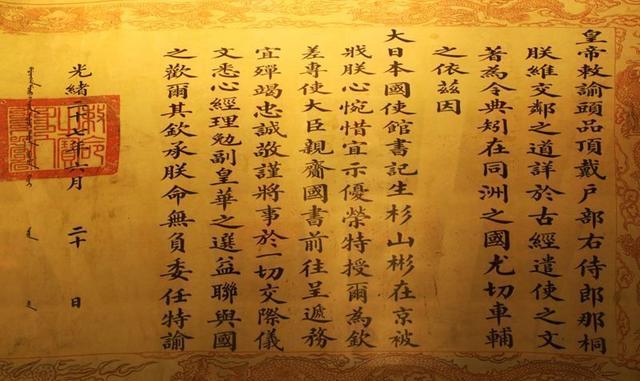 皇帝敕諭頭品頂戴户部右侍郎那桐
朕維交鄰之道詳於古經遣使之文
著為令典矧在同洲之國尤切車輔
之依茲因
大日本國使館書記生杉山彬在京被
戕朕心惋惜宜示優榮特授爾為欽
差專使大臣親齎國書前往呈遞務
宜殫竭忠誠敬謹將事於一切交際儀
文悉心經理勉副皇華之選益聯與國
之歡爾其欽承朕命無負委任特諭
光緒二十七年六月 二十 日